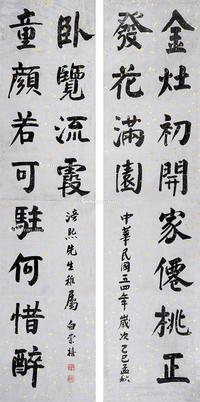 金灶初開家僊桃正
發花滿園
中華民國五四年歲次乙巳孟秋
童顏若可駐何惜醉
臥覽流霞
先生雅屬
白崇禧